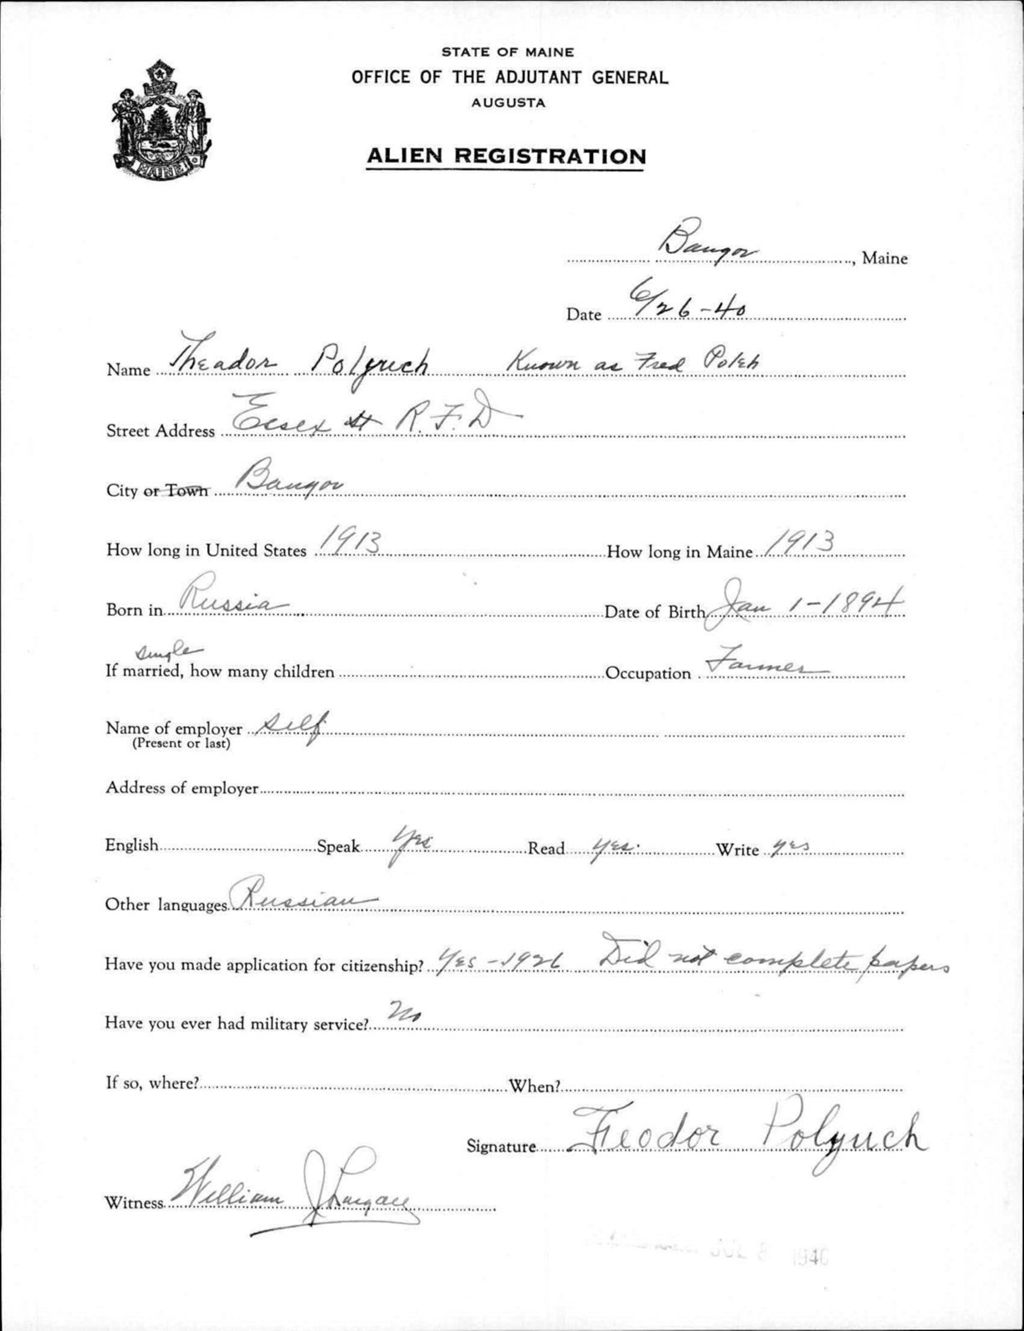 STATE OF MAINE
OFFICE OF THE ADJUTANT GENERAL
AUGUSTA
ALIEN REGISTRATION
MAINE
Bangor, Maine
Date 6/26-40
Name Theador Polynch Known as Fred Poleh
Street Address Essex St R.F.D
City or Town Bangor
How long in United States 1913 How long in Maine 1913
Born in Russia Date of Birth Jan 1-1894
single
If married, how many children Occupation Farmer
Name of employer self
(Present or last)
Address of employer
English Speak Yes Read yes. Write yes
Other languages Russian
Have you made application for citizenship? Yes - 1926 Did not complete papers
Have you ever had military service? No
If so, where? When?
Signature Feodor Polynch
Witness William J
JUL 8 1940